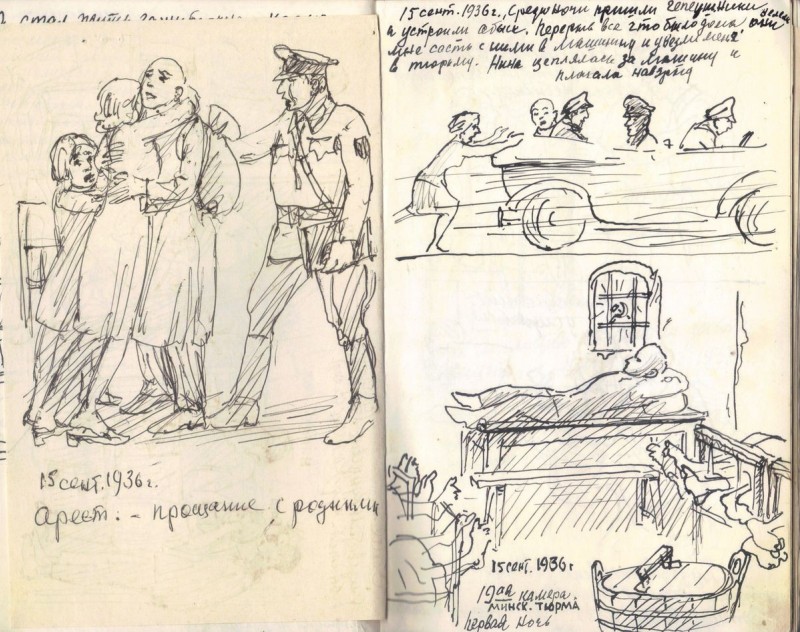 стал
15 сент. 1936 г.
Арест. – прощание с родными
15 сент. 1936 г., Средь ночи пришли гепеушники
и устроили обыск. Перерыв все что было дома они
мне сесть с ними в машину и увезли меня
в тюрьму. Нина цеплялась за машину и
плакала навзрыд
15 сент. 1936 г
19ая камера.
МИНСК. ТЮРМА
первая ночь